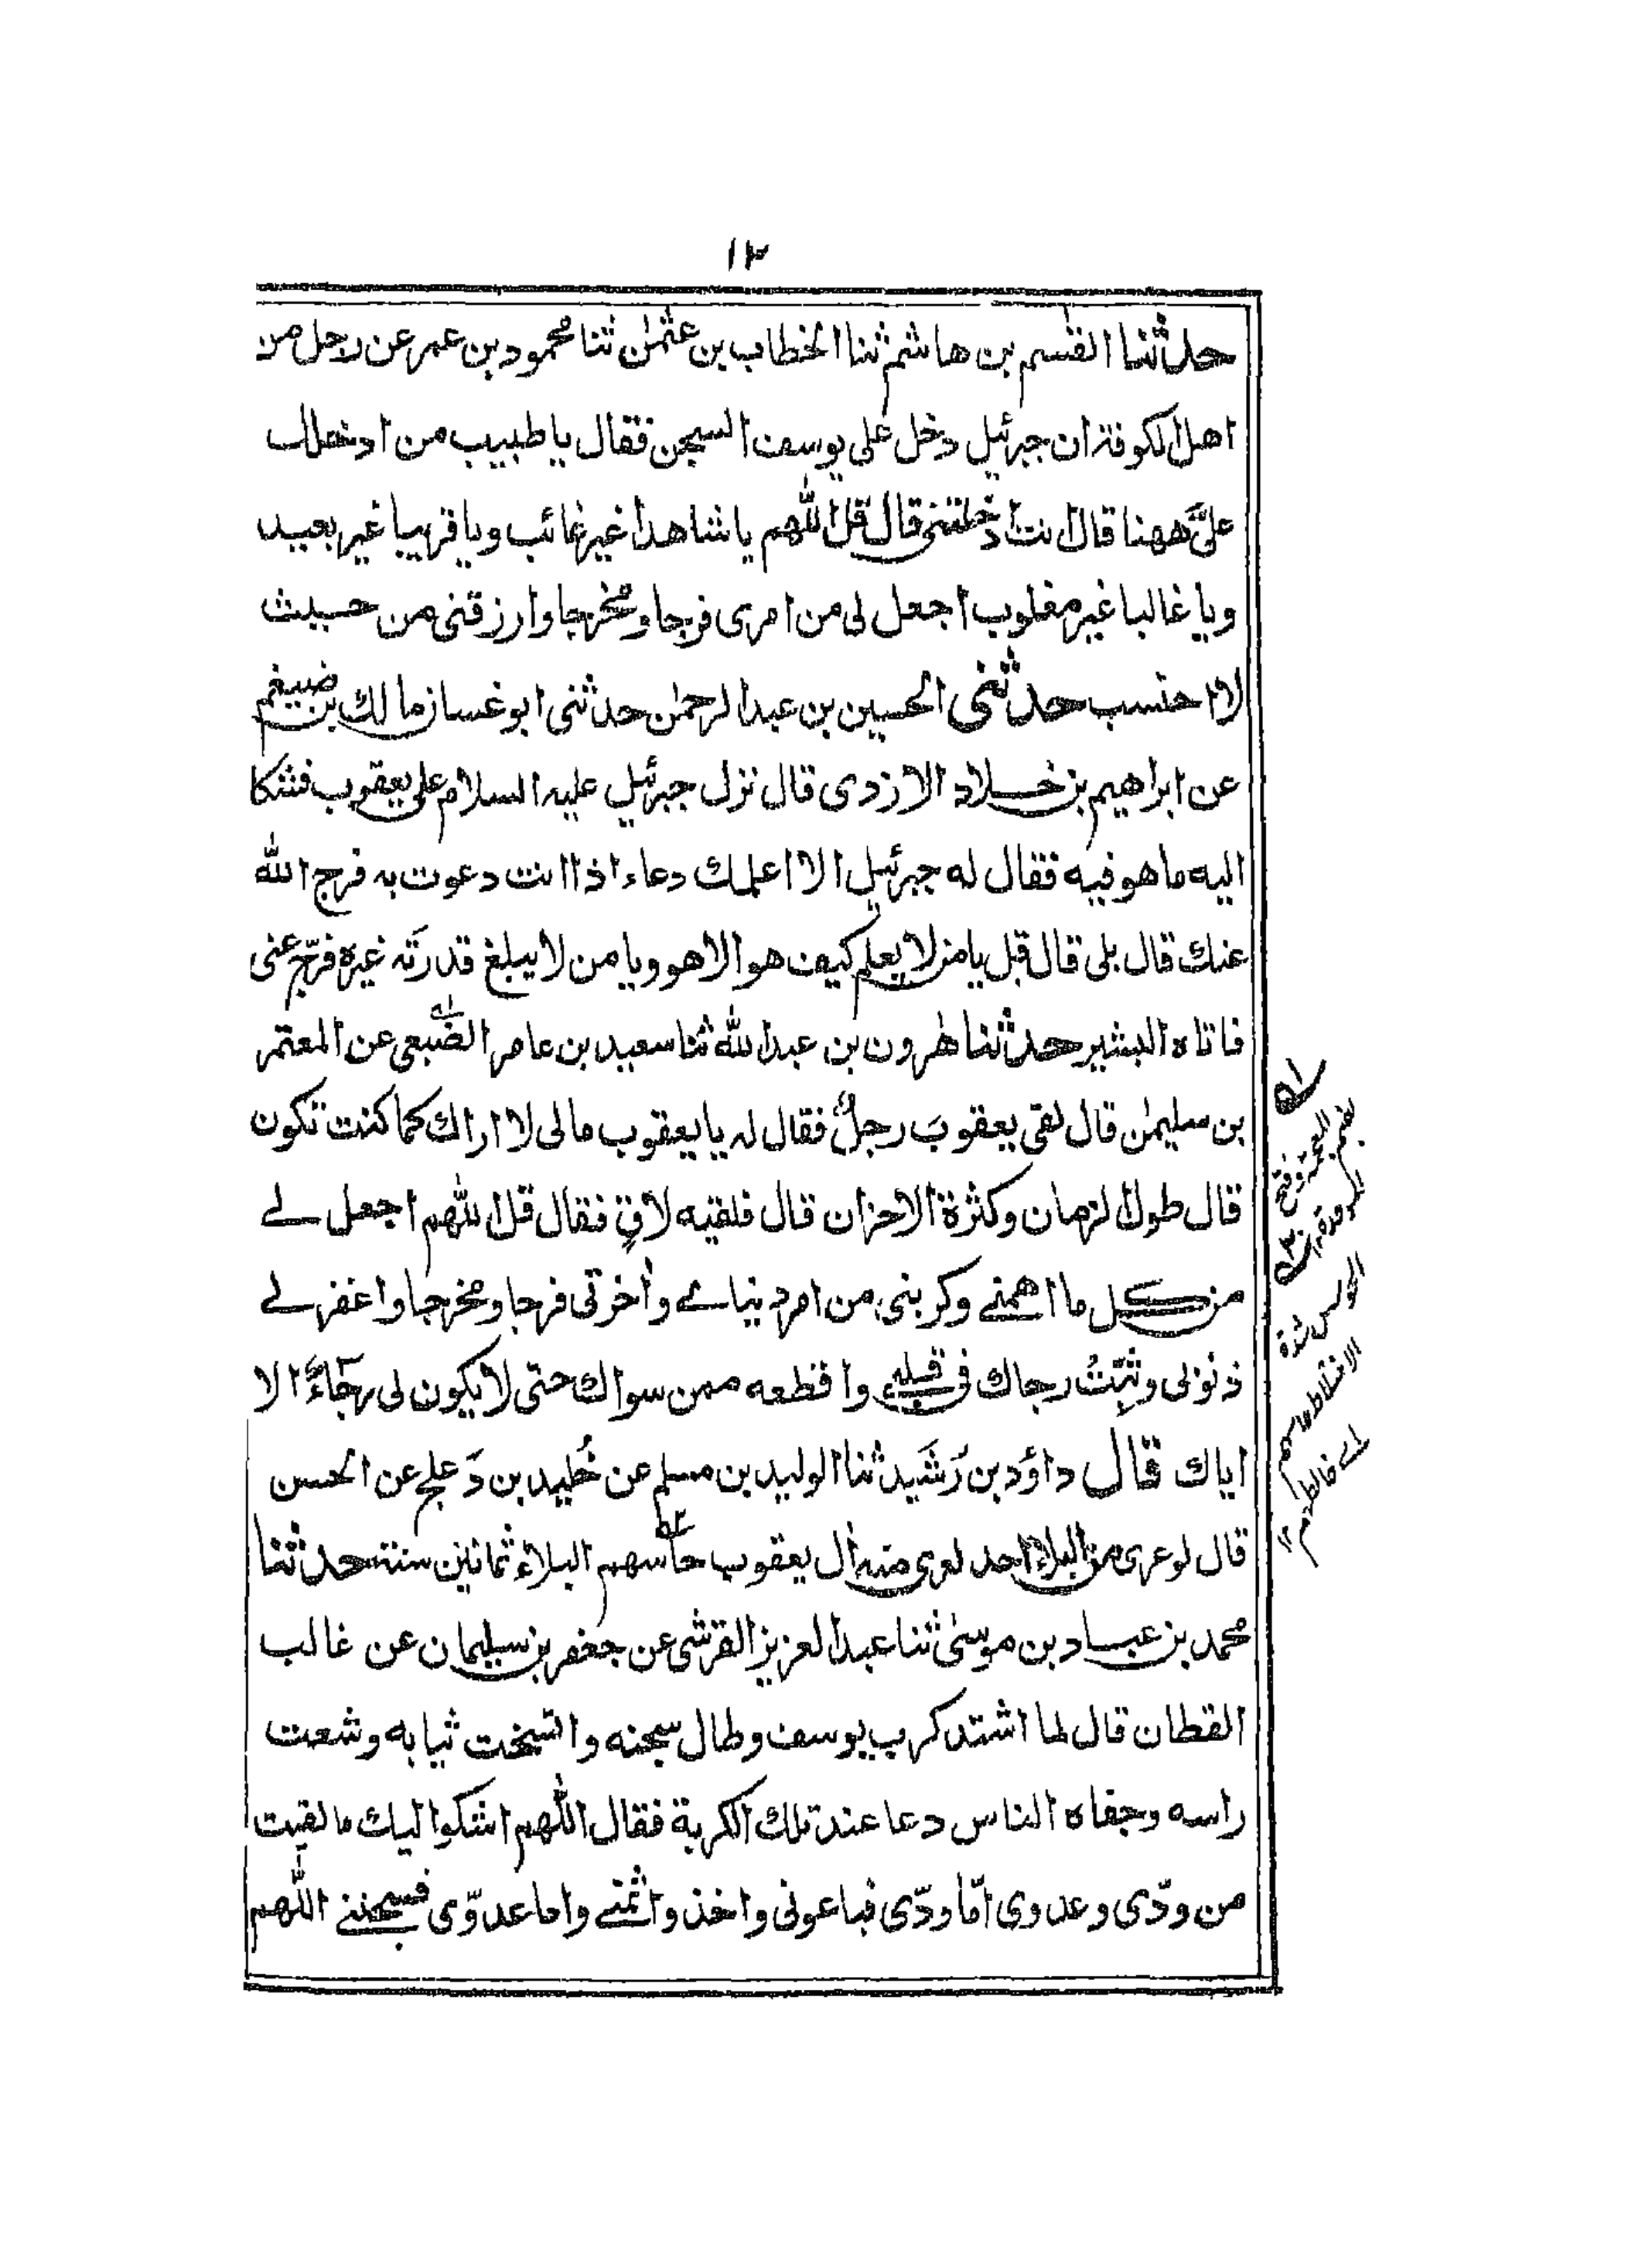 ١٢
حدثنا القٰسم بن هاشم ثنا الخطاب بن عثمٰن ثنا محمود بن عمر عن رجل من
اهل الكوفة ان جبرئيل دخل على يوسف السجن فقال يا طبيب من ادخلك
علىَّ ههنا قال انت ادخلتنى قال قل اللهم يا شاهدا غير غائب ويا قريبا غير بعيد
ويا غالبا غير مغلوب اجعل لى من امرى فرجا ومخرجا وارزقنى من حيث
لا احتسب حدثنى الحسين بن عبد الرحمٰن حدثنى ابو غسان مالك بن ضيغم
عن ابراهيم بن خلاد الازدى قال نزل جبرئيل عليه السلام على يعقوب فشكا
اليه ما هو فيه فقال له جبرئيل الا اعلمك دعاء اذا انت دعوت به فرج الله
عنك قال بلى قال قل يا من لا يعلم كيف هو الا هو ويا من لا يبلغ قدرتَه غيره فرّج عنى
فاتاه البشير حدثنا هٰرون بن عبد الله ثنا سعيد بن عامر الضُبعى عن المعتمر
بن سليمٰن قال لقى يعقوبَ رجلٌ فقال له يا يعقوب مالى لا اراك كما كنت تكون
قال طول الزمان وكثرة الاحزان قال فلقيه لاقٍ فقال قل اللهم اجعل لے
من كل ما اهمنے وكربنى من امر دنياے واٰخرتى فرجا ومخرجا واغفر لے
ذنوبى وثبِّتْ رجاك فى قلبے واقطعه ممن سواك حتى لا يكون لى رجاءً الا
اياك قال داؤد بن رَشَيد ثنا الوليد بن مسلم عن خُليد بن دَعلج عن الحسن
قال لو عرى من البلاء احد لعرى منه اٰل يعقوب حاسهم البلاء ثمانين سنة حدثنا
محمد بن عباد بن موسٰى ثنا عبد العزيز القرشى عن جعفر بن سليمان عن غالب
القطان قال لما اشتد كرب يوسف وطال سجنه واتسخت ثيابه وشعث
راسه وجفاه الناس دعا عند تلك الكربة فقال اللهم اشكوا اليك ما لقيت
من ودّى وعدوى امّا ودّى فباعونى واخذوا ثمنے واما عدوّى فسجننے اللهم
بضم المعجمة وفتح
الموحدة
الحوس شدة
الاختلاط